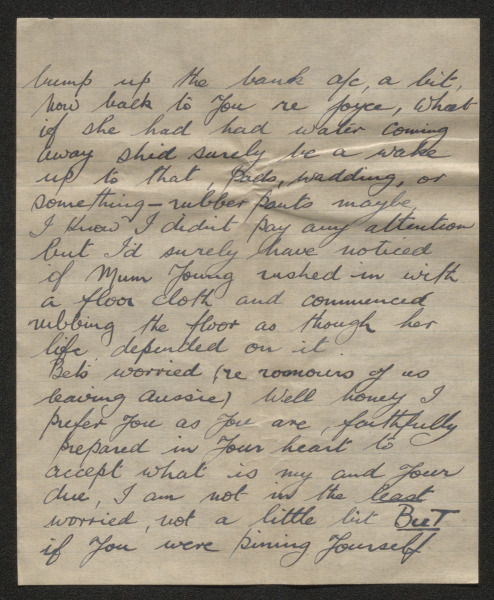 bump up the bank a/c, a bit,
now back to You re Joyce, What
if she had had water coming
away she'd surely be a wake
up to that, Pads, wadding, or
something - rubber pants maybe,
I know I didn't pay any attention
but I'd surely have noticed
if Mum Young rushed in with
a floor cloth and commenced
rubbing the floor as though her
life depended on it.
Bets worried (re romours of us
leaving Aussie) Well honey I
prefer You as You are, faithfully
prepared in Your heart to
accept what is my and Your
due, I am not in the least
worried, not a little bit BuT
if You were pining Yourself